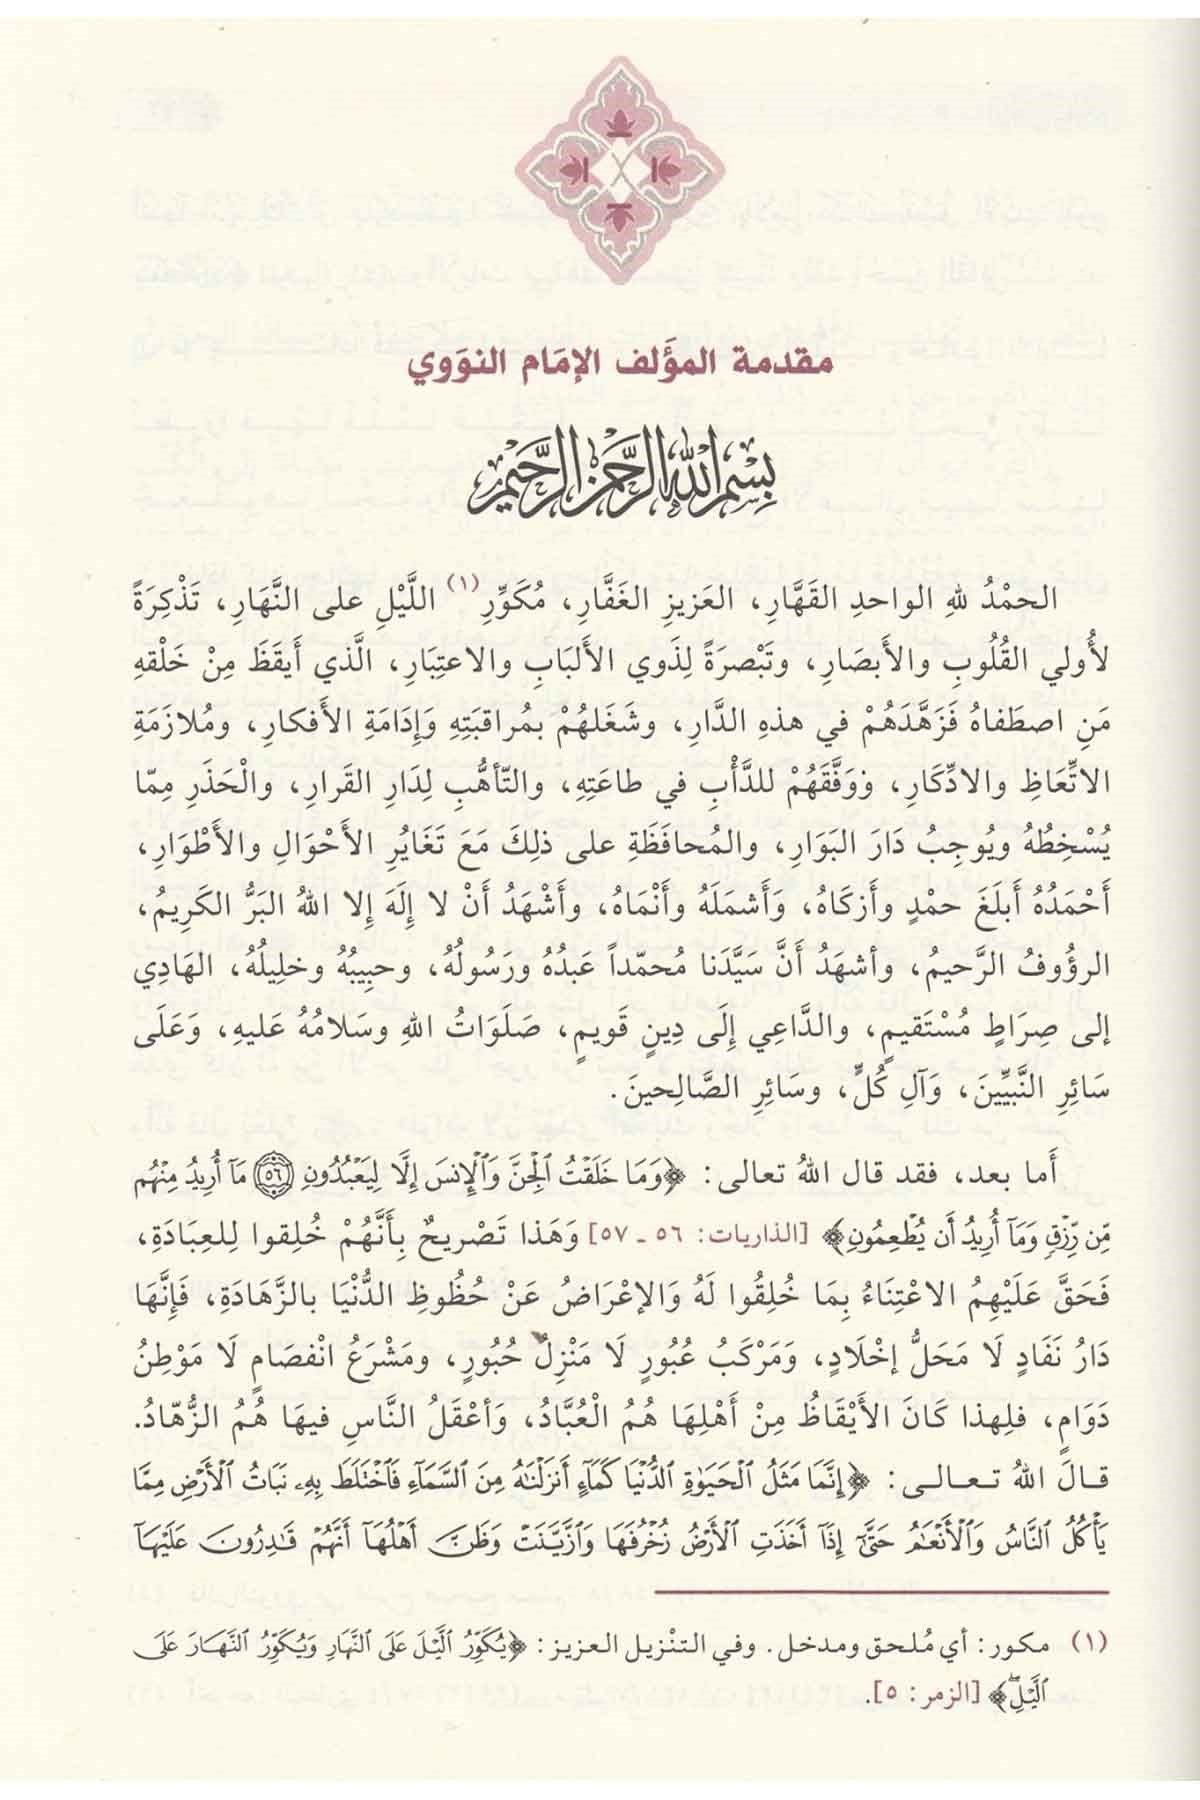 مقدمة المؤَلف الإمَام النوَوي
بِسْمِ اللهِ الرَّحْمٰنِ الرَّحِيمِ
الحمْدُ للهِ الواحدِ القَهَّارِ، العَزيزِ الغَفَّارِ، مُكَوِّرِ(١) اللَّيْلِ على النَّهَارِ، تَذْكِرَةً
لأُولي القُلُوبِ والأَبصَارِ، وتَبْصرَةً لِذَوي الأَلبَابِ والاعتِبَارِ، الَّذي أَيقَظَ مِنْ خَلْقهِ
مَنِ اصطَفاهُ فَزَهَّدَهُمْ في هذهِ الدَّارِ، وشَغَلهُمْ بمُراقبَتِهِ وَإِدَامَةِ الأَفكارِ، ومُلازَمَةِ
الاتِّعَاظِ والادِّكَارِ، ووَفَّقَهُمْ للدَّأْبِ في طاعَتِهِ، والتّأهُّبِ لِدَارِ القَرارِ، والْحَذَرِ مِمّا
يُسْخِطُهُ ويُوجِبُ دَارَ البَوَارِ، والمُحافَظَةِ على ذلِكَ مَعَ تَغَايُرِ الأَحْوَالِ والأَطْوَارِ،
أَحْمَدُهُ أَبلَغَ حمْدٍ وأَزكَاهُ، وَأَشمَلَهُ وأَنْمَاهُ، وأَشْهَدُ أَنْ لا إِلَهَ إِلا اللهُ البَرُّ الكَرِيمُ،
الرؤُوفُ الرَّحيمُ، وأشهَدُ أَنَّ سَيَّدَنا مُحمّداً عَبدُهُ ورَسُولُهُ، وحبِيبُهُ وخلِيلُهُ، الهَادِي
إلى صِرَاطٍ مُسْتَقيمٍ، والدَّاعِي إِلَى دِينٍ قَويمٍ، صَلَوَاتُ اللهِ وسَلامُهُ عَليهِ، وَعَلَى
سَائِرِ النَّبِيِّينَ، وَآلِ كُلٍّ، وسَائِرِ الصَّالِحينَ.
أَما بعد، فقد قال اللهُ تعالى: ﴿وَمَا خَلَقْتُ ٱلْجِنَّ وَٱلْإِنسَ إِلَّا لِيَعْبُدُونِ ۝٥٦ مَآ أُرِيدُ مِنْهُم
مِّن رِّزْقٍ وَمَآ أُرِيدُ أَن يُطْعِمُونِ﴾ [الذاريات: ٥٦ ـ ٥٧] وَهَذا تَصْريحٌ بِأَنَّهُمْ خُلِقوا لِلعِبَادَةِ،
فَحَقَّ عَلَيْهِمُ الاعْتِنَاءُ بِمَا خُلِقُوا لَهُ وَالإعْرَاضُ عَنْ حُظُوظِ الدُّنْيَا بالزَّهَادَةِ، فَإِنَّهَا
دَارُ نَفَادٍ لَا مَحَلُّ إخْلَادٍ، وَمَرْكَبُ عُبُورٍ لَا مَنْزِلُ حُبُورٍ، ومَشْرَعُ انْفصَامٍ لَا مَوْطِنُ
دَوَامٍ، فلِهذا كَانَ الأَيْقَاظُ مِنْ أَهْلِهَا هُمُ الْعُبَّادُ، وَأعْقَلُ النَّاسِ فيهَا هُمُ الزُّهّادُ.
قالَ اللهُ تعالى: ﴿إِنَّمَا مَثَلُ ٱلْحَيَوٰةِ ٱلدُّنْيَا كَمَآءٍ أَنزَلْنَٰهُ مِنَ ٱلسَّمَآءِ فَٱخْتَلَطَ بِهِۦ نَبَاتُ ٱلْأَرْضِ مِمَّا
يَأْكُلُ ٱلنَّاسُ وَٱلْأَنْعَٰمُ حَتَّىٰٓ إِذَآ أَخَذَتِ ٱلْأَرْضُ زُخْرُفَهَا وَٱزَّيَّنَتْ وَظَنَّ أَهْلُهَآ أَنَّهُمْ قَٰدِرُونَ عَلَيْهَآ
(١) مكور: أي مُلحق ومدخل. وفي التنْزيل العزيز: ﴿يُكَوِّرُ ٱلَّيْلَ عَلَى ٱلنَّهَارِ وَيُكَوِّرُ ٱلنَّهَارَ عَلَى
ٱلَّيْلِۖ﴾ [الزمر: ٥].